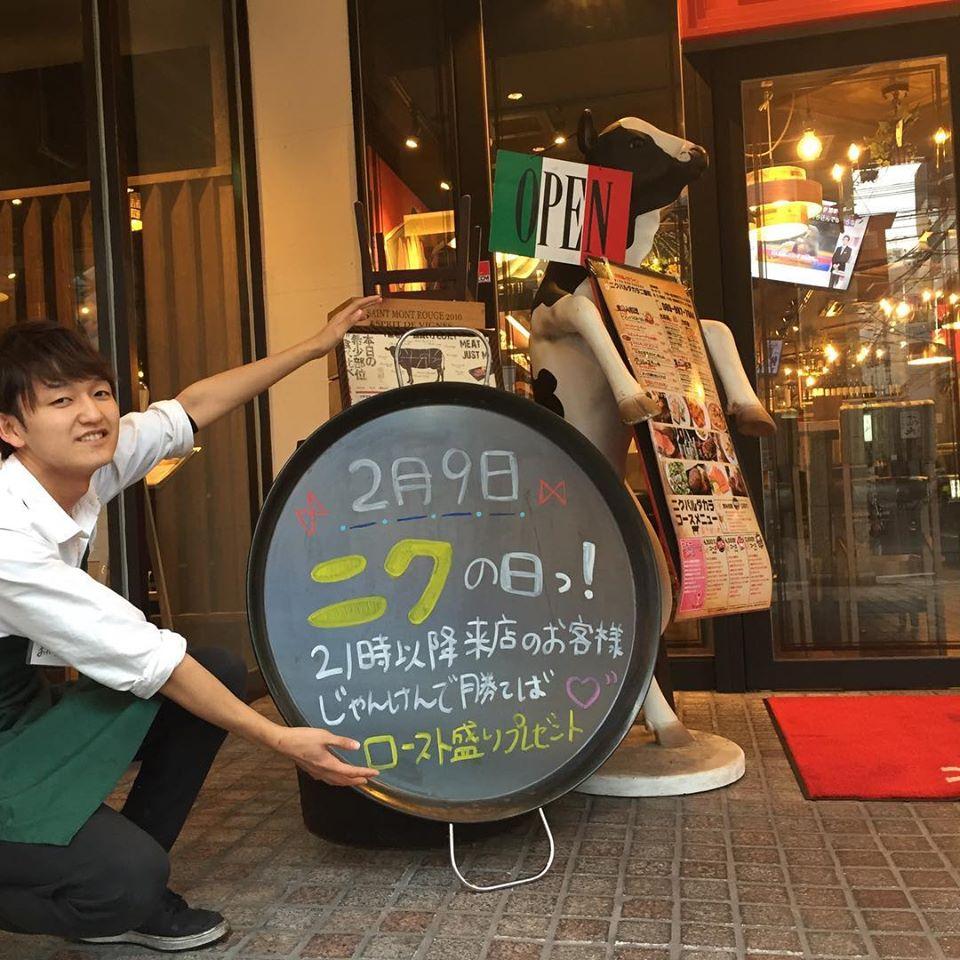 OPEN
SAINT MONT ROUGE 2010
本日の
希少部位
MEAT
JUST M
2月9日
ニクの日っ!
21時以降来店のお客様
じゃんけんで勝てば
ロースト盛りプレゼント
ニクバルダカラ
コースメニュー